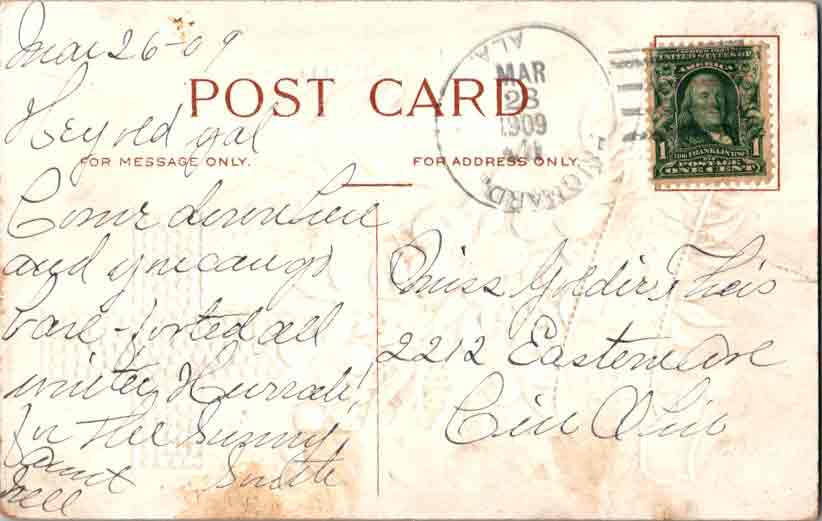 Mar 26-09
POST CARD
FOR MESSAGE ONLY.
FOR ADDRESS ONLY.
Hey old gal
Come down here
and you can go
bare-footed all
winter Hurrah!
for The Sunny
South
Aunt
Nell
ALA.
MAR
23
1909
SERIES 1902
UNITED STATES OF
AMERICA
1 1
FRANKLIN
POSTAGE
ONE CENT
Miss Goldie Theis
2212 Eastern Ave
Cin Ohio